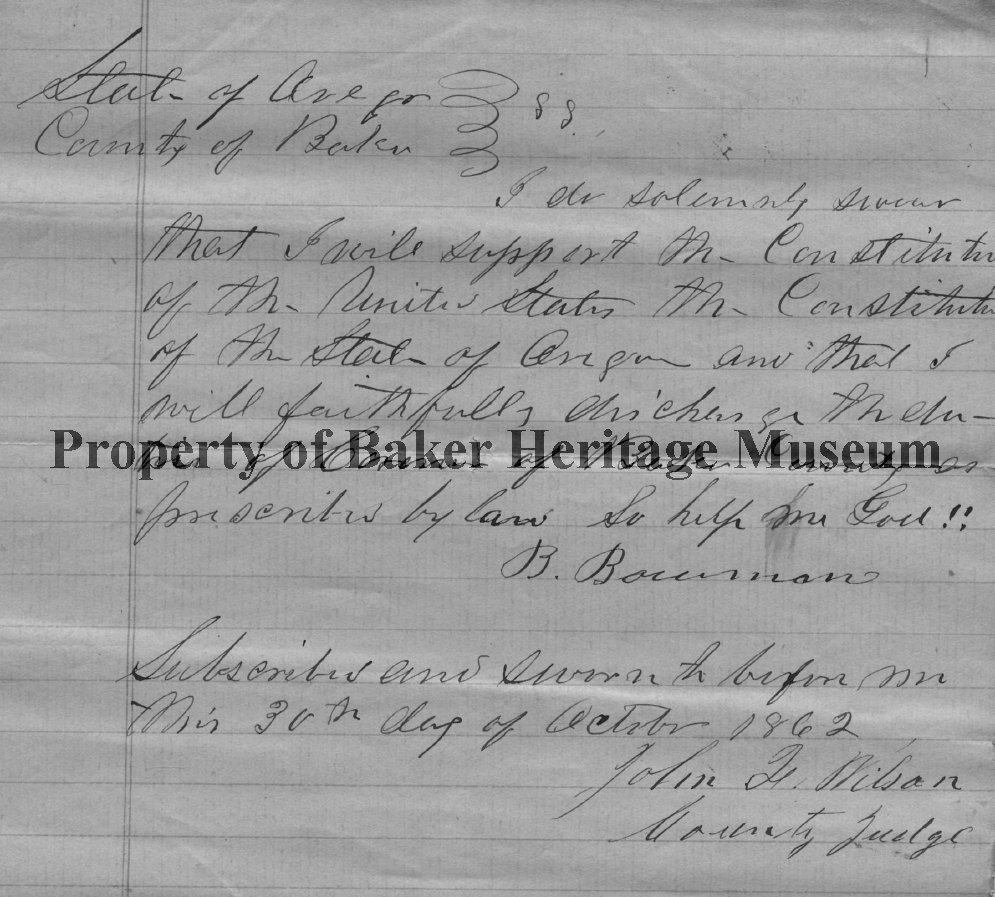 State of Oregon
County of Baker } ss.
I do solemnly swear
that I will support the Constitution
of the United States the Constitution
of the State of Oregon and that I
will faithfully discharge the du-
ties of Coroner of Baker County as
Property of Baker Heritage Museum
prescribed by law So help me God!!
B. Bowman
Subscribed and sworn to before me
this 30th day of October 1862
John F. Wilson
County Judge